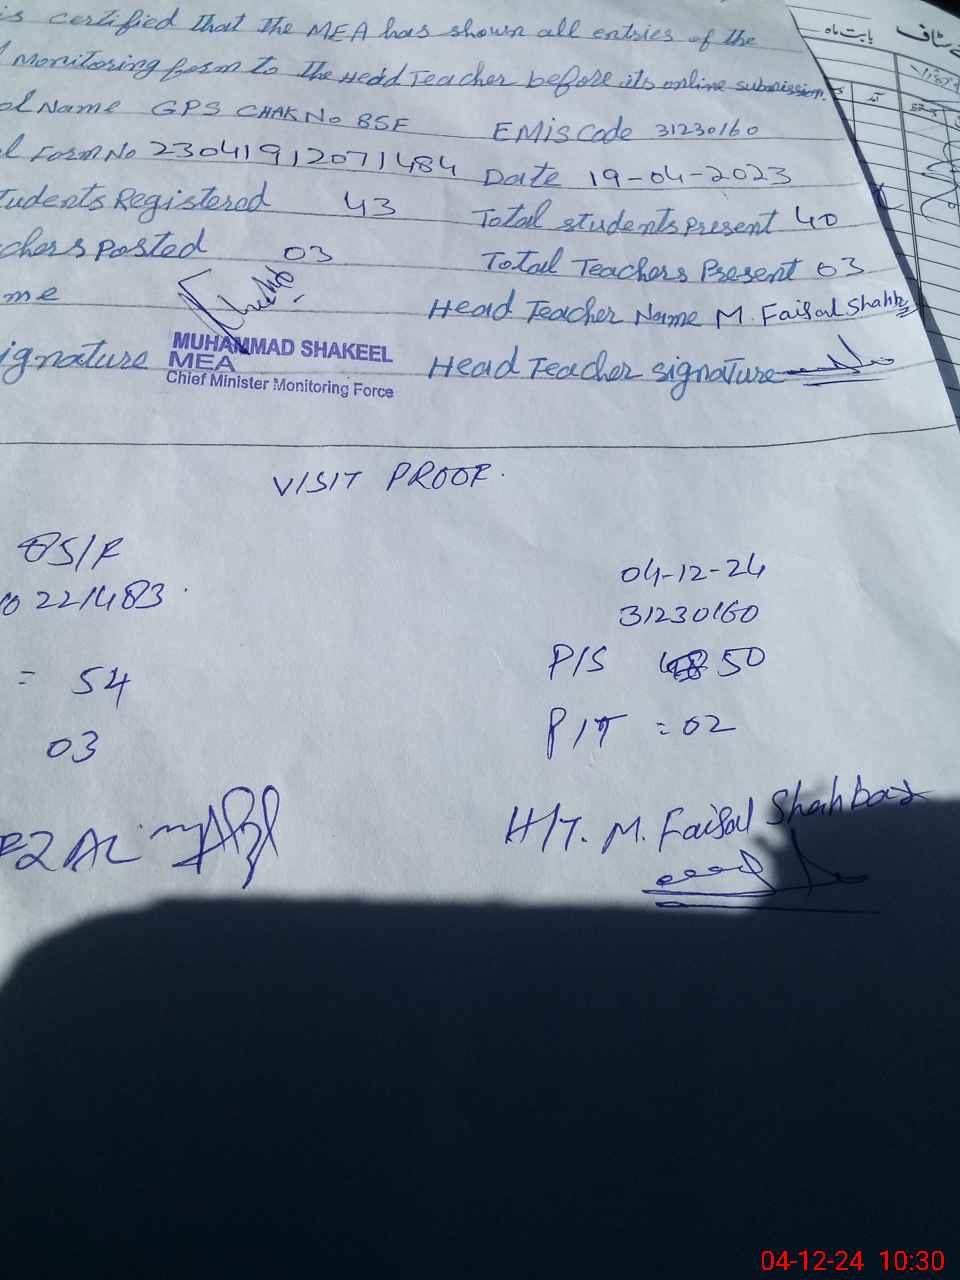 is certified that the MEA has shown all entries of the
Monitoring form to the Head Teacher before its online submission.
ol Name GPS CHAK No 85F EMIS Code 31230160
l Form No 23041912071484 Date 19-04-2023
tudents Registered 43 Total students Present 40
chers Posted 03 Total Teachers Present 03
me Head Teacher Name M. Faisal Shahbz
ignature Head Teacher signature
MUHAMMAD SHAKEEL
MEA
Chief Minister Monitoring Force
VISIT PROOF.
85/F 04-12-24
221483 31230160
P/S 50
= 54
P/T = 02
03
H/T. M. Faisal Shahbaz
بابت ماہ
سٹاف
آمد
04-12-24 10:30